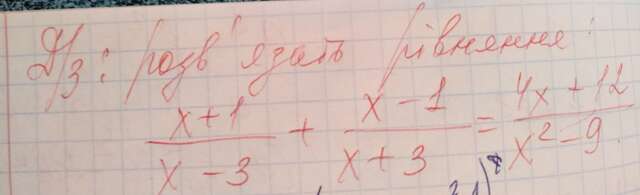 Д/з: розв'язать рівняння:
x+1/x-3 + x-1/x+3 = 4x+12/x²-9